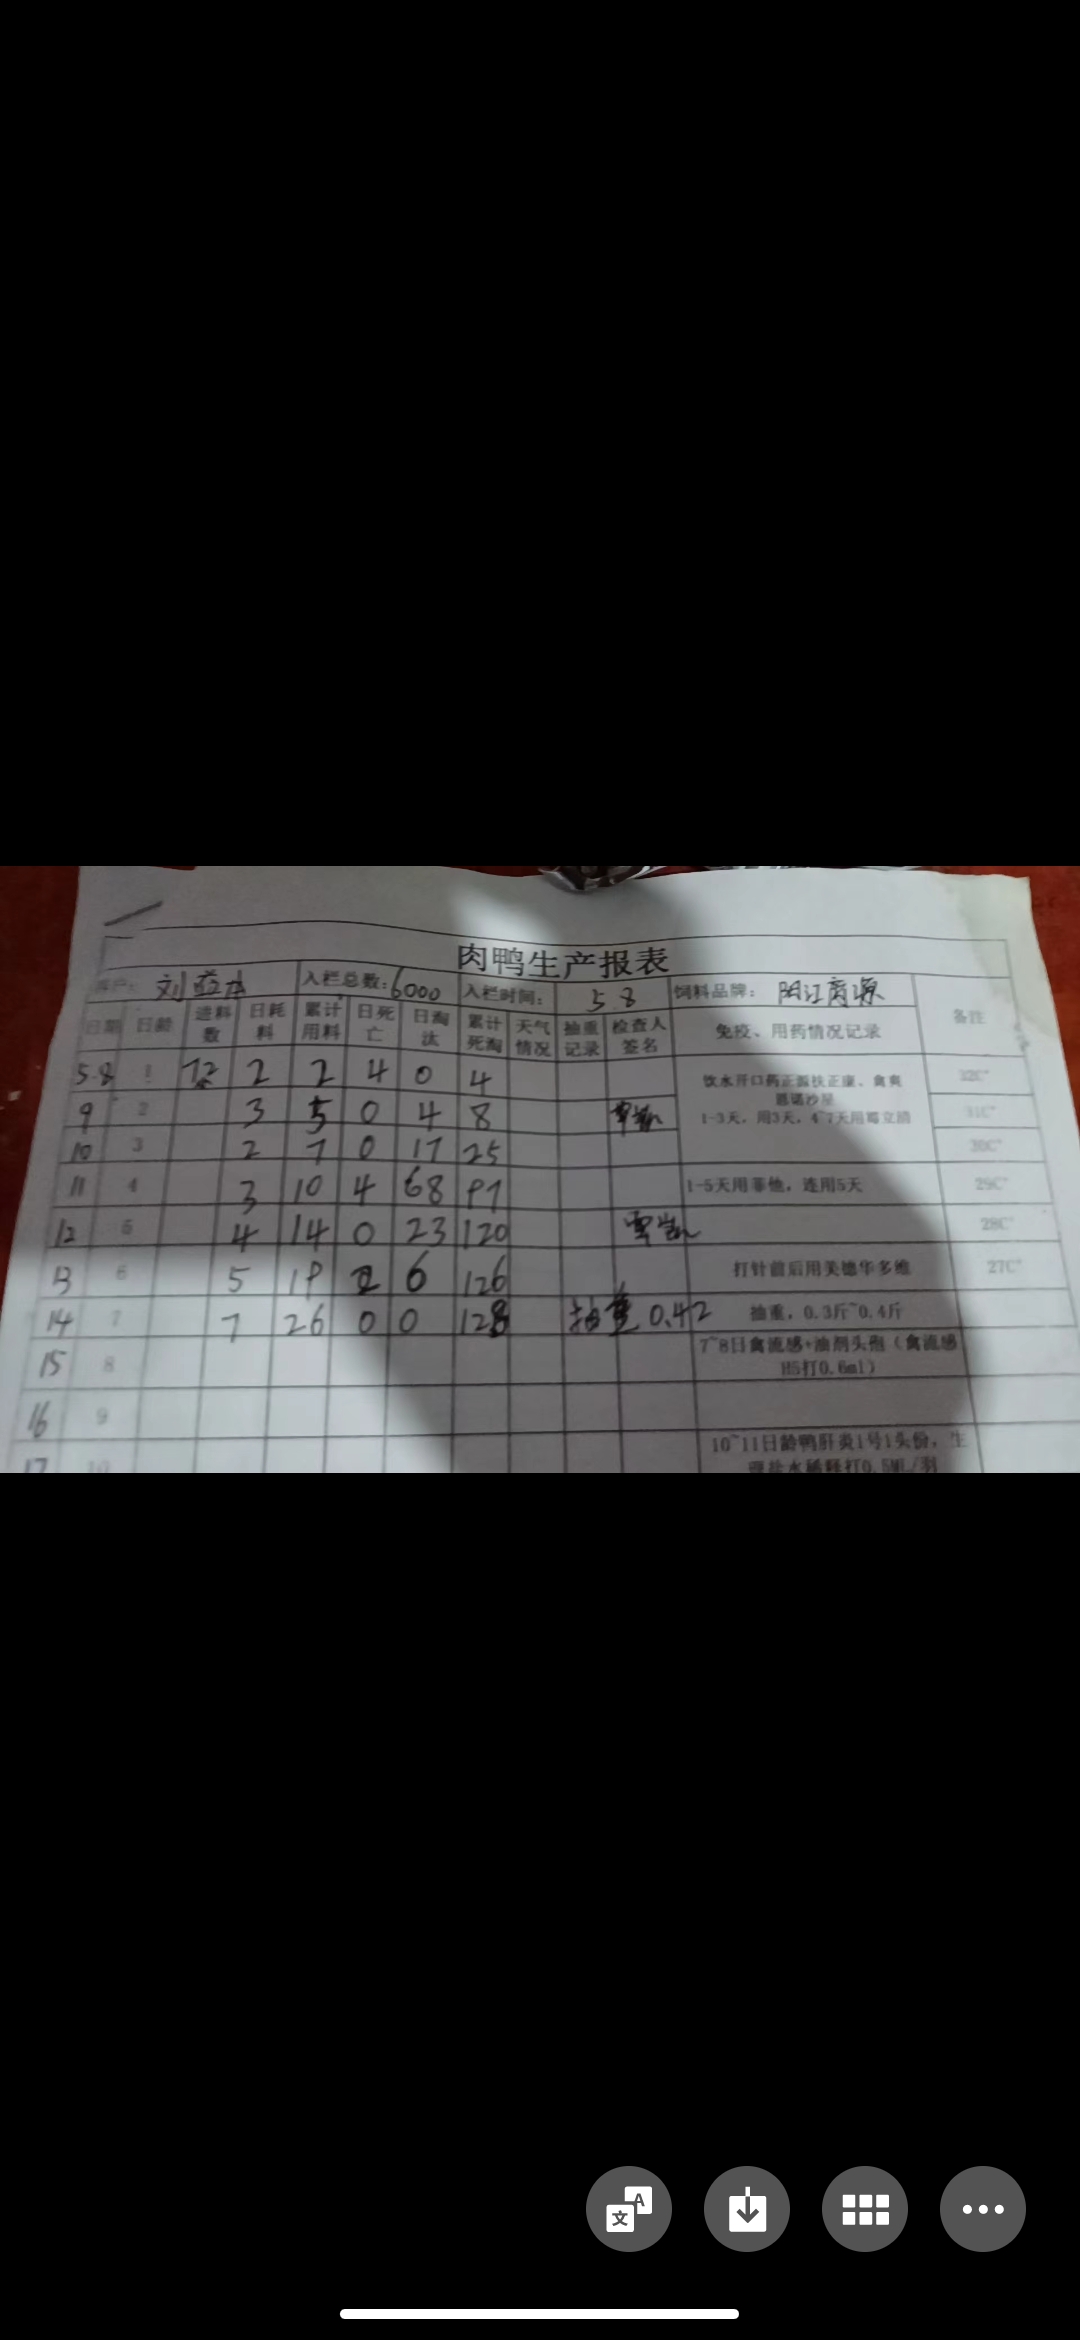 肉鸭生产报表
刘 入栏总数:6000 入栏时间: 5 8 饲料品牌: 阳江 备注
日期 日龄 进料数 日耗料 累计用料 日死亡 日淘汰 累计死淘 天气情况 抽重记录 检查人签名 免疫、用药情况记录
5.8 1 72 2 2 4 0 4 饮水开口药正源扶正康、禽爽 32C°
恩诺沙星
9 2 3 5 0 4 8 1-3天，用3天，4~7天用霉立清 31C°
10 3 2 7 0 17 25 30C°
11 4 3 10 4 68 97 1-5天用菲他，连用5天 29C°
12 5 4 14 0 23 120 28C°
13 6 5 19 2 6 126 打针前后用美德华多维 27C°
14 7 7 26 0 0 128 抽重 0.42 抽重，0.3斤~0.4斤
15 8 7~8日禽流感+油剂头孢（禽流感
H5打0.6ml）
16 9
17 10 10~11日龄鸭肝炎1号1头份，生
理盐水稀释打0.5ML/羽